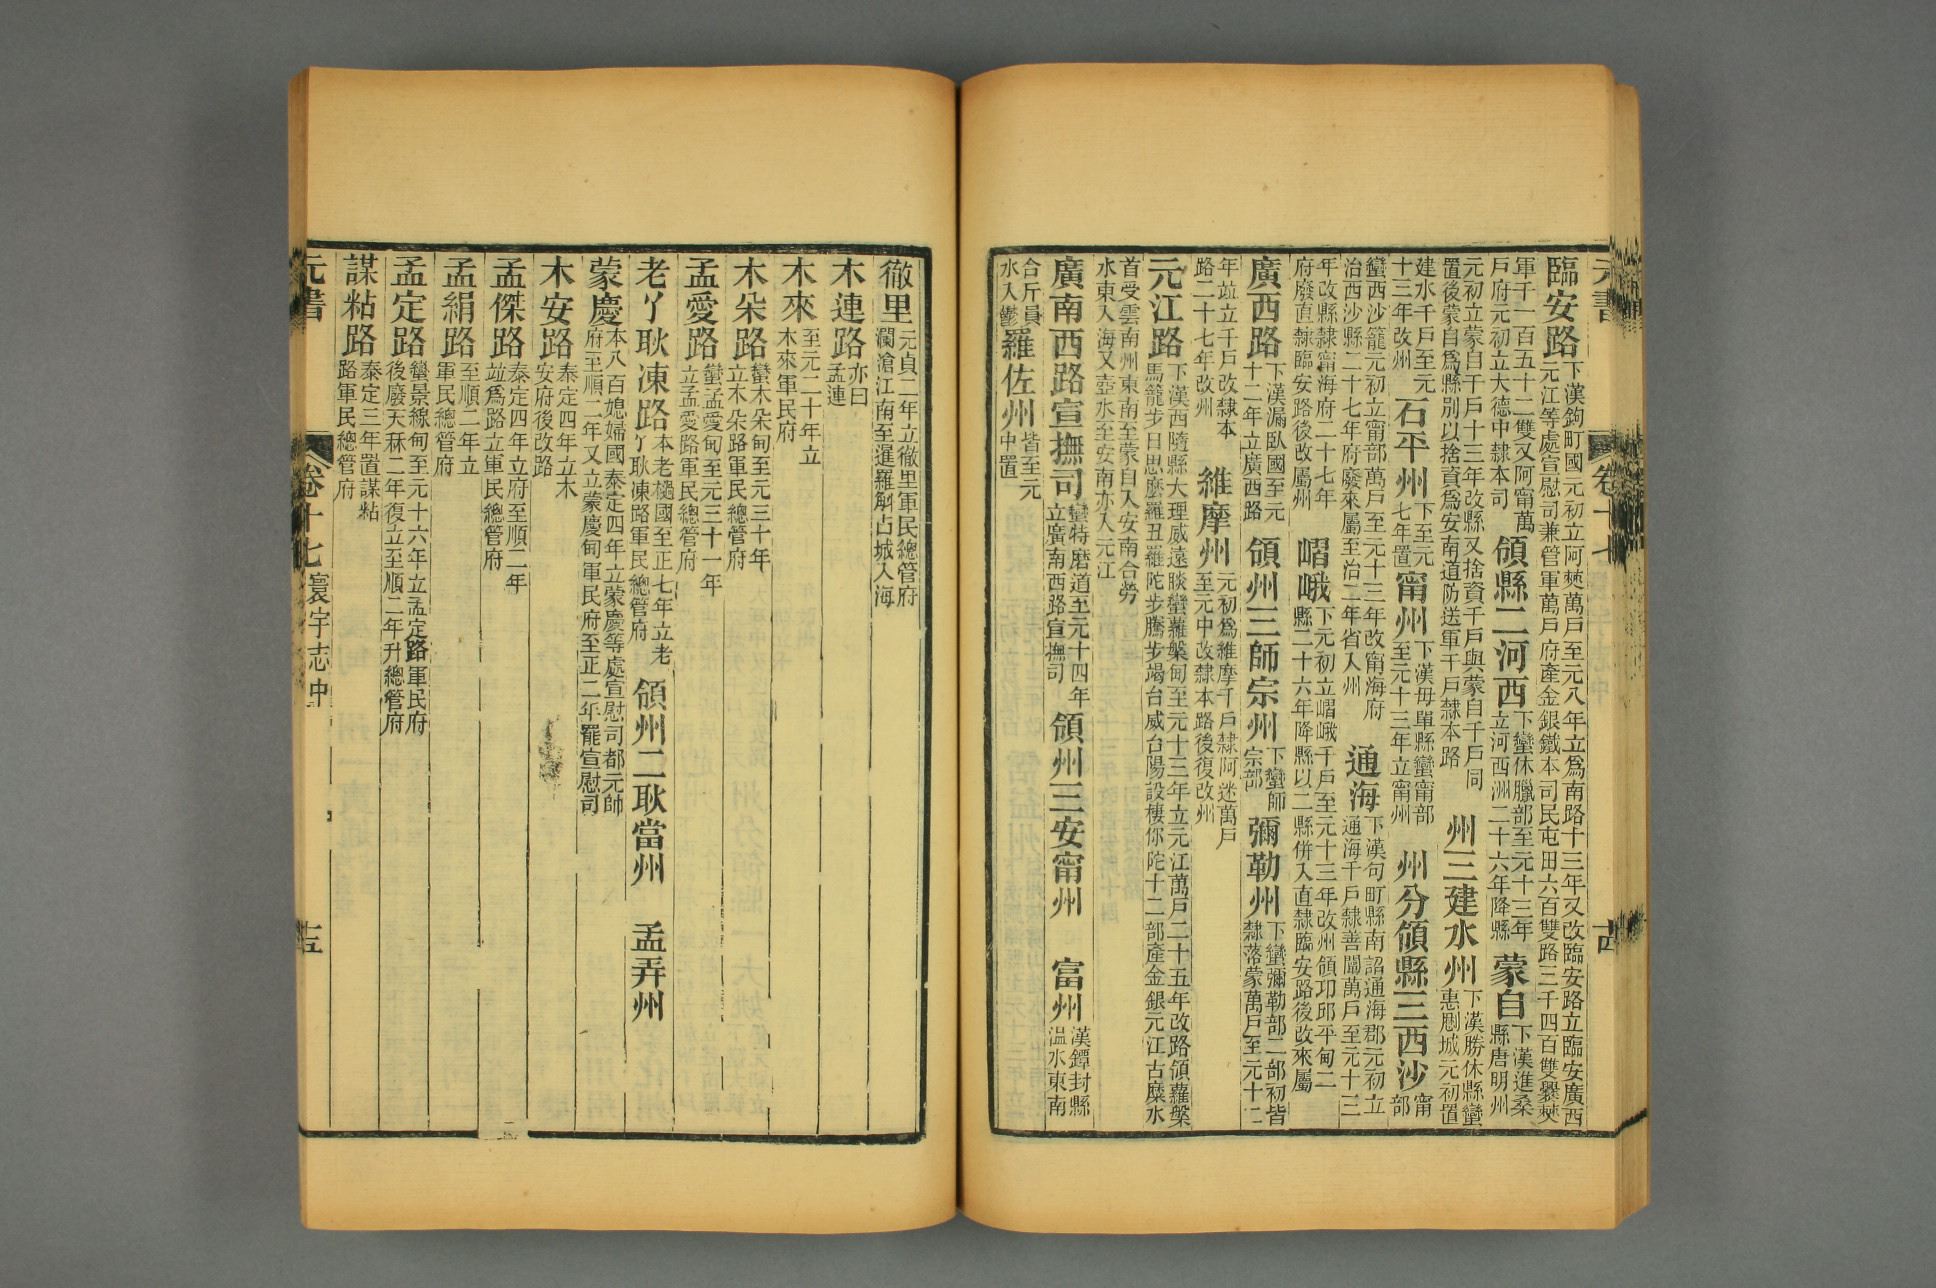 元書 卷十七
臨安路下漢鉤町國元初立阿僰萬戶至元八年立爲南路十三年又改臨安路立臨安廣西
元江等處宣慰司兼管軍萬戶府產金銀鐵本司民屯田六百雙路三千四百雙爨僰
軍千一百五十二雙又阿甯萬
戶府元初立大德中隸本司
領縣二河西下蠻休臘部至元十三年
立河西洲二十六年降縣
蒙自下漢進桑
縣唐明州
元初立蒙自千戶十三年改縣又捨資千戶與蒙自千戶同
置後蒙自爲縣別以捨資爲安南道防送軍千戶隸本路
州三建水州下漢勝休縣蠻
惠城元初置
建水千戶至元
十三年改州
石平州下至元
七年置
甯州下漢毋單縣蠻甯部
至元十三年立甯州
州分領縣三西沙甯
部
蠻西沙籠元初立甯部萬戶至元十三年改甯海府
治西沙縣二十七年府廢來屬至治二年省入州
通海下漢句町縣南詔通海郡元初立
通海千戶隸善闡萬戶至元十三
年改縣隸甯海府二十七年
府廢直隸臨安路後改屬州
嶍峨下元初立嶍峨千戶至元十三年改州領邛邱平甸二
縣二十六年降縣以二縣併入直隸臨安路後改來屬
廣西路下漢漏臥國至元
十二年立廣西路
領州三師宗州下蠻師
宗部
彌勒州下蠻彌勒部二部初皆
隸落蒙萬戶至元十二
年竝立千戶改隸本
路二十七年改州
維摩州元初爲維摩千戶隸阿迷萬戶
至元中改隸本路後復改州
元江路下漢西隨縣大理威遠睒蠻蘿槃甸至元十三年立元江萬戶二十五年改路領蘿槃
馬籠步日思麼羅丑羅陀步騰步竭台威台陽設棲你陀十二部產金銀元江古麋水
首受雲南州東南至蒙自入安南合勞
水東入海又壺水至安南亦入元江
廣南西路宣撫司蠻特磨道至元十四年
立廣南西路宣撫司
領州三安甯州 富州漢鐔封縣
温水東南
合斤員
水入鬱
羅佐州皆至元
中置
徹里元貞二年立徹里軍民總管府
瀾滄江南至暹羅斛占城入海
木連路亦曰
孟連
木來至元二十年立
木來軍民府
木朵路蠻木朵甸至元三十年
立木朵路軍民總管府
孟愛路蠻孟愛甸至元三十一年
立孟愛路軍民總管府
老丫耿凍路本老檛國至正七年立老
丫耿凍路軍民總管府
領州二耿當州 孟弄州
蒙慶本八百媳婦國泰定四年立蒙慶等處宣慰司都元帥
府至順二年又立蒙慶甸軍民府至正二年罷宣慰司
木安路泰定四年立木
安府後改路
孟傑路泰定四年立府至順二年
竝爲路立軍民總管府
孟絹路至順二年立
軍民總管府
孟定路蠻景線甸至元十六年立孟定路軍民府
後廢天秝二年復立至順二年升總管府
謀粘路泰定三年置謀粘
路軍民總管府
元書 卷十七寰宇志中